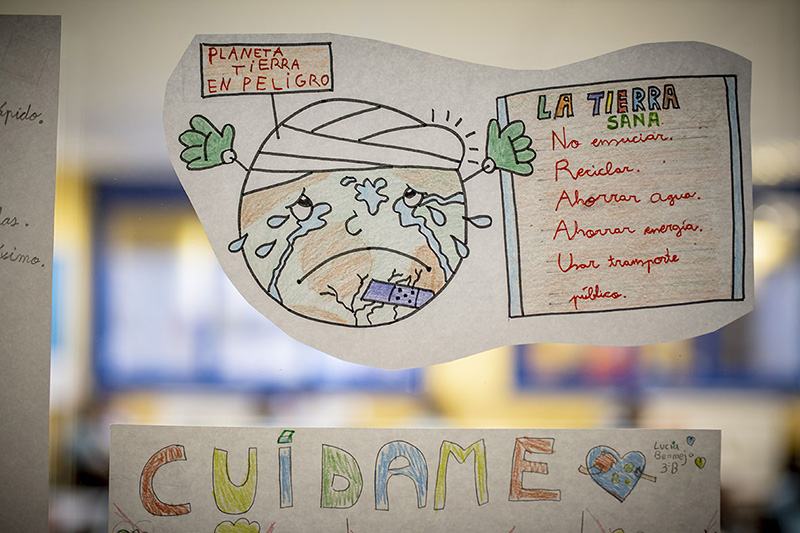 PLANETA
TIERRA
EN PELIGRO
LA TIERRA
SANA
No ensuciar.
Reciclar.
Ahorrar agua.
Ahorrar energía.
Usar transporte
público.
CUÍDAME
Lucía
3ºB